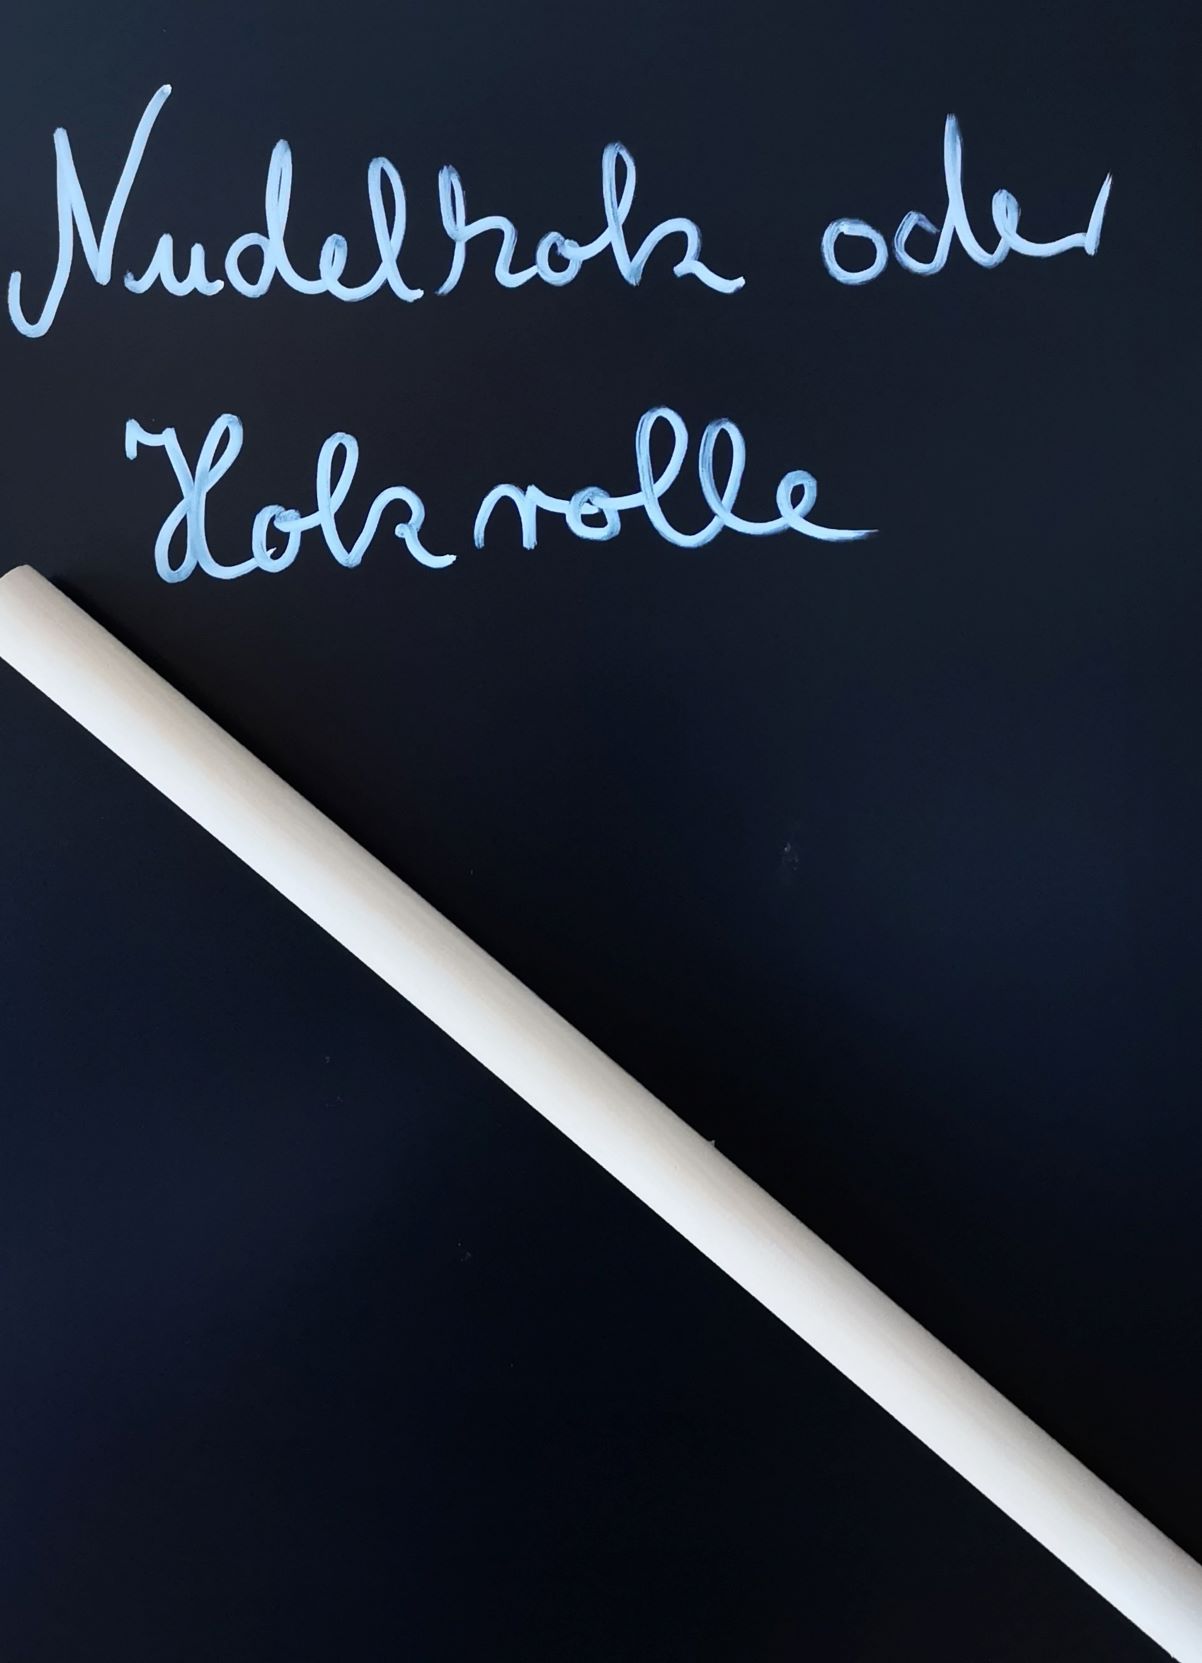 Nudelholz oder
Holzrolle